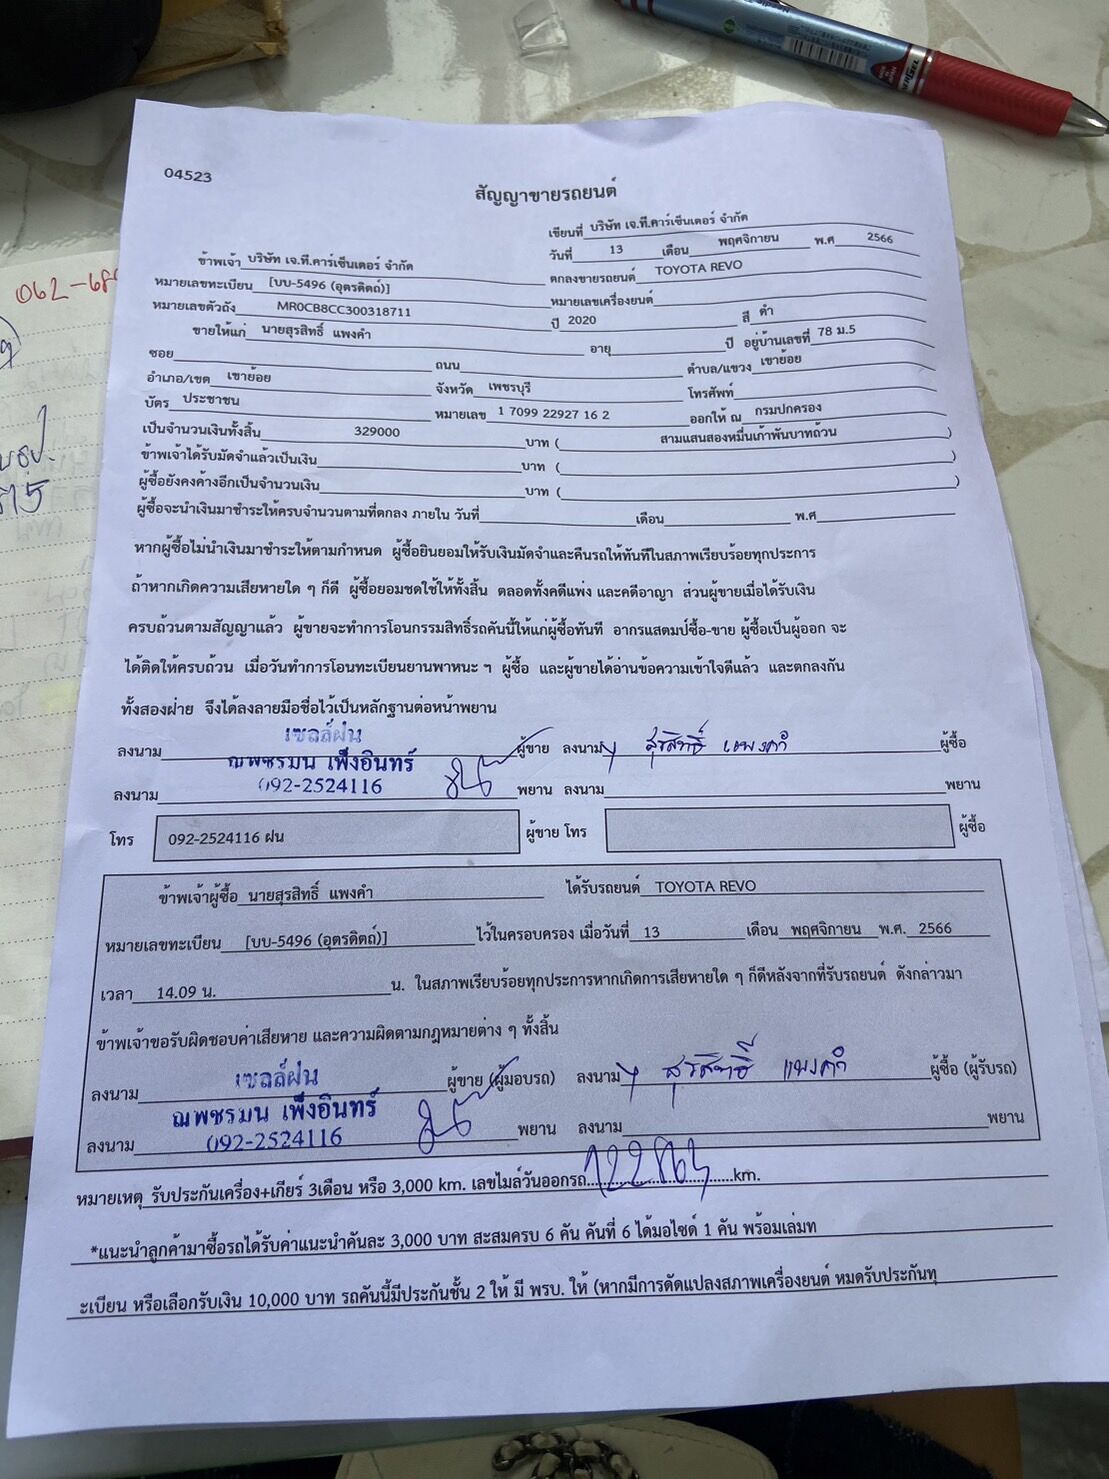 04523
สัญญาขายรถยนต์
เขียนที่ บริษัท เจ.ที.คาร์เซ็นเตอร์ จำกัด
วันที่ 13 เดือน พฤศจิกายน พ.ศ 2566
ข้าพเจ้า บริษัท เจ.ที.คาร์เซ็นเตอร์ จำกัด ตกลงขายรถยนต์ TOYOTA REVO
หมายเลขทะเบียน [บบ-5496 (อุตรดิตถ์)] หมายเลขเครื่องยนต์
หมายเลขตัวถัง MR0CB8CC300318711 ปี 2020 สี ดำ
ขายให้แก่ นายสุรสิทธิ์ แพงคำ อายุ ปี อยู่บ้านเลขที่ 78 ม.5
ซอย ถนน ตำบล/แขวง เขาย้อย
อำเภอ/เขต เขาย้อย จังหวัด เพชรบุรี โทรศัพท์
บัตร ประชาชน หมายเลข 1 7099 22927 16 2 ออกให้ ณ กรมปกครอง
เป็นจำนวนเงินทั้งสิ้น 329000 บาท ( สามแสนสองหมื่นเก้าพันบาทถ้วน )
ข้าพเจ้าได้รับมัดจำแล้วเป็นเงิน บาท ( )
ผู้ซื้อยังคงค้างอีกเป็นจำนวนเงิน บาท ( )
ผู้ซื้อจะนำเงินมาชำระให้ครบจำนวนตามที่ตกลง ภายใน วันที่ เดือน พ.ศ
หากผู้ซื้อไม่นำเงินมาชำระให้ตามกำหนด ผู้ซื้อยินยอมให้รับเงินมัดจำและคืนรถให้ทันทีในสภาพเรียบร้อยทุกประการ
ถ้าหากเกิดความเสียหายใด ๆ ก็ดี ผู้ซื้อยอมชดใช้ให้ทั้งสิ้น ตลอดทั้งคดีแพ่ง และคดีอาญา ส่วนผู้ขายเมื่อได้รับเงิน
ครบถ้วนตามสัญญาแล้ว ผู้ขายจะทำการโอนกรรมสิทธิ์รถคันนี้ให้แก่ผู้ซื้อทันที อากรแสตมป์ซื้อ-ขาย ผู้ซื้อเป็นผู้ออก จะ
ได้ติดให้ครบถ้วน เมื่อวันทำการโอนทะเบียนยานพาหนะ ฯ ผู้ซื้อ และผู้ขายได้อ่านข้อความเข้าใจดีแล้ว และตกลงกัน
ทั้งสองฝ่าย จึงได้ลงลายมือชื่อไว้เป็นหลักฐานต่อหน้าพยาน
เซลล์ฝน
ลงนาม ผู้ขาย ลงนาม สุรสิทธิ์ แพงคำ ผู้ซื้อ
ณพชรมน เพ็งอินทร์
092-2524116
ลงนาม พยาน ลงนาม พยาน
โทร 092-2524116 ฝน ผู้ขาย โทร ผู้ซื้อ
ข้าพเจ้าผู้ซื้อ นายสุรสิทธิ์ แพงคำ ได้รับรถยนต์ TOYOTA REVO
หมายเลขทะเบียน [บบ-5496 (อุตรดิตถ์)] ไว้ในครอบครอง เมื่อวันที่ 13 เดือน พฤศจิกายน พ.ศ. 2566
เวลา 14.09 น. น. ในสภาพเรียบร้อยทุกประการหากเกิดการเสียหายใด ๆ ก็ดีหลังจากที่รับรถยนต์ ดังกล่าวมา
ข้าพเจ้าขอรับผิดชอบค่าเสียหาย และความผิดตามกฎหมายต่าง ๆ ทั้งสิ้น
เซลล์ฝน
ลงนาม ผู้ขาย (ผู้มอบรถ) ลงนาม สุรสิทธิ์ แพงคำ ผู้ซื้อ (ผู้รับรถ)
ณพชรมน เพ็งอินทร์
092-2524116
ลงนาม พยาน ลงนาม พยาน
หมายเหตุ รับประกันเครื่อง+เกียร์ 3เดือน หรือ 3,000 km. เลขไมล์วันออกรถ km.
*แนะนำลูกค้ามาซื้อรถได้รับค่าแนะนำคันละ 3,000 บาท สะสมครบ 6 คัน คันที่ 6 ได้มอไซด์ 1 คัน พร้อมเล่มท
ะเบียน หรือเลือกรับเงิน 10,000 บาท รถคันนี้มีประกันชั้น 2 ให้ มี พรบ. ให้ (หากมีการดัดแปลงสภาพเครื่องยนต์ หมดรับประกันทุ